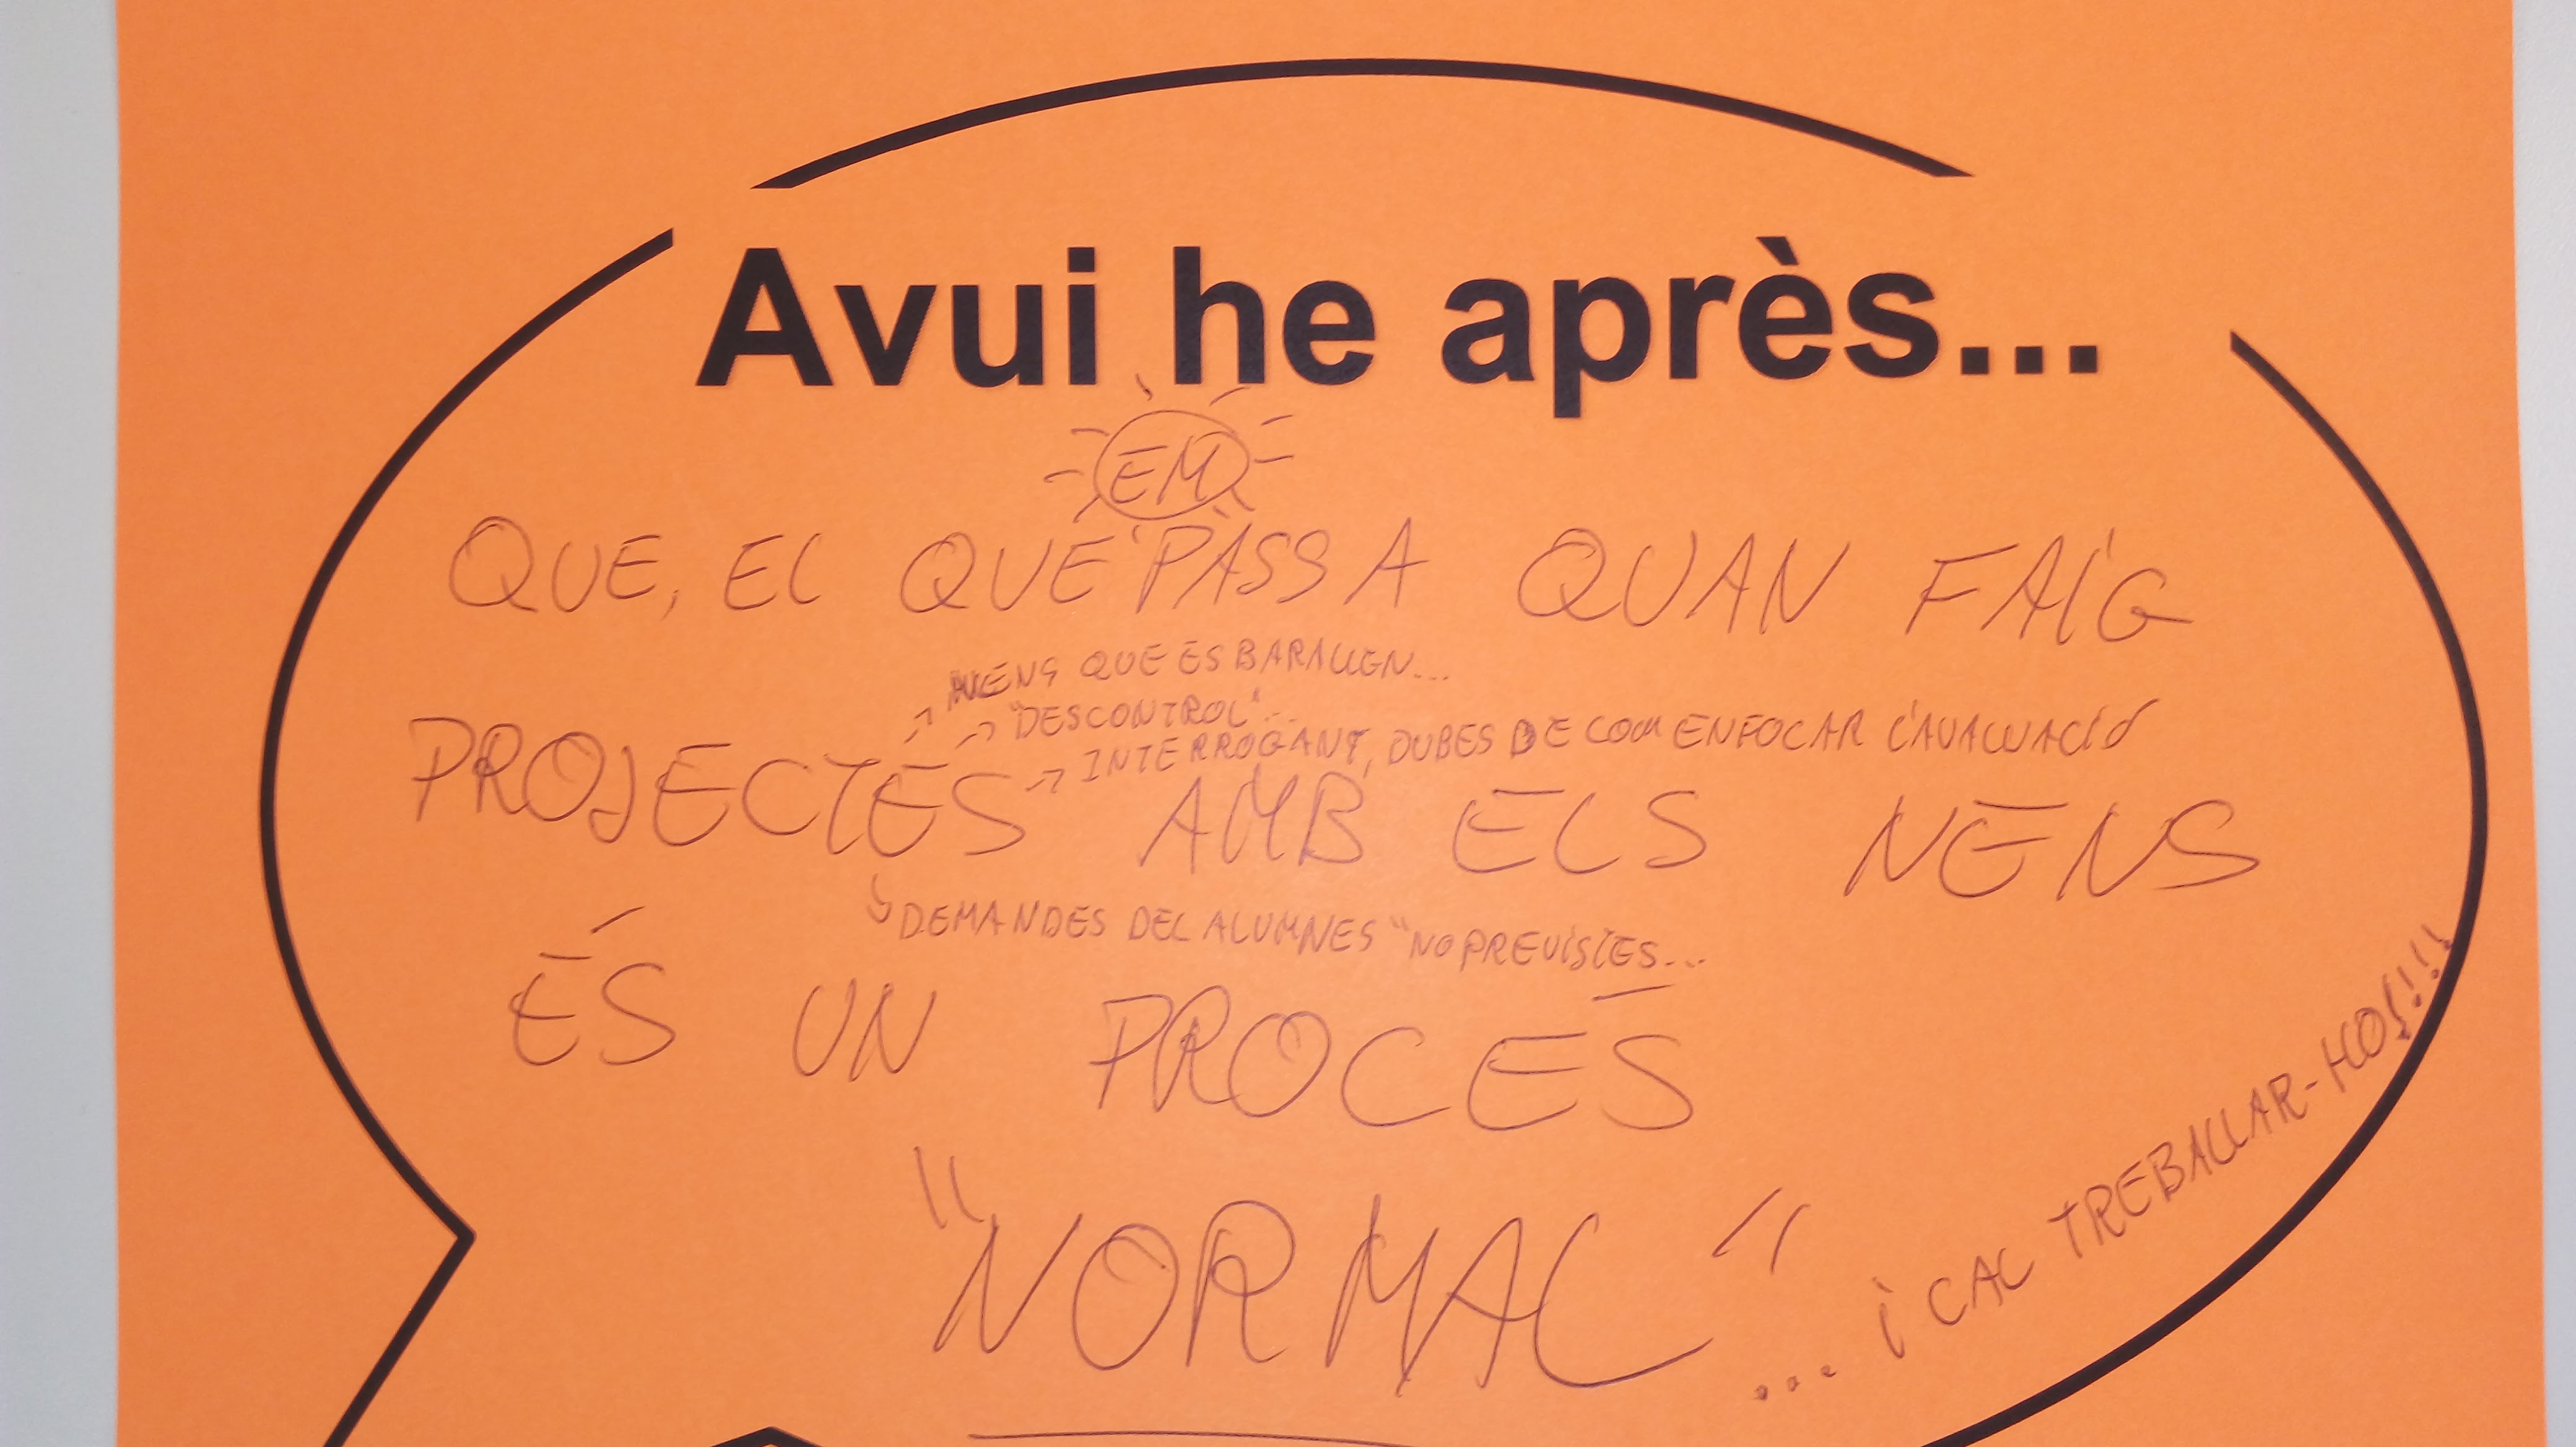 Avui he après...
EM
QUE, EL QUE PASSA QUAN FAIG
NENS QUE ES BARALLEN...
"DESCONTROL"...
INTERROGANT, DUBES DE COM ENFOCAR L'AVALUACIÓ
PROJECTES AMB ELS NENS
DEMANDES DEL ALUMNES "NO PREVISTES...
ÉS UN PROCES
"NORMAL"
... i CAL TREBALLAR-HO!!!!